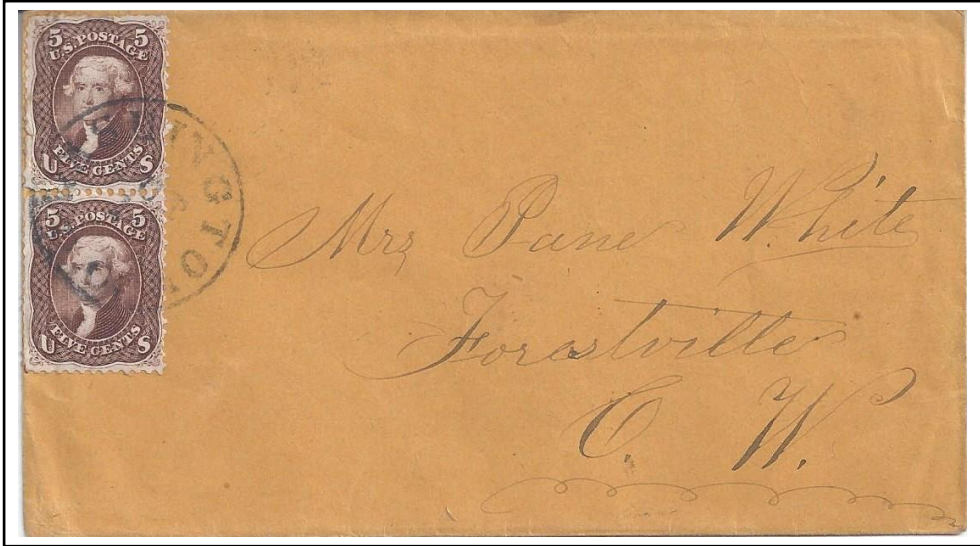 5 5
U.S. POSTAGE
FIVE CENTS
U S
5 5
U.S. POSTAGE
FIVE CENTS
U S
Mrs Jane White
Forestville
C. W.